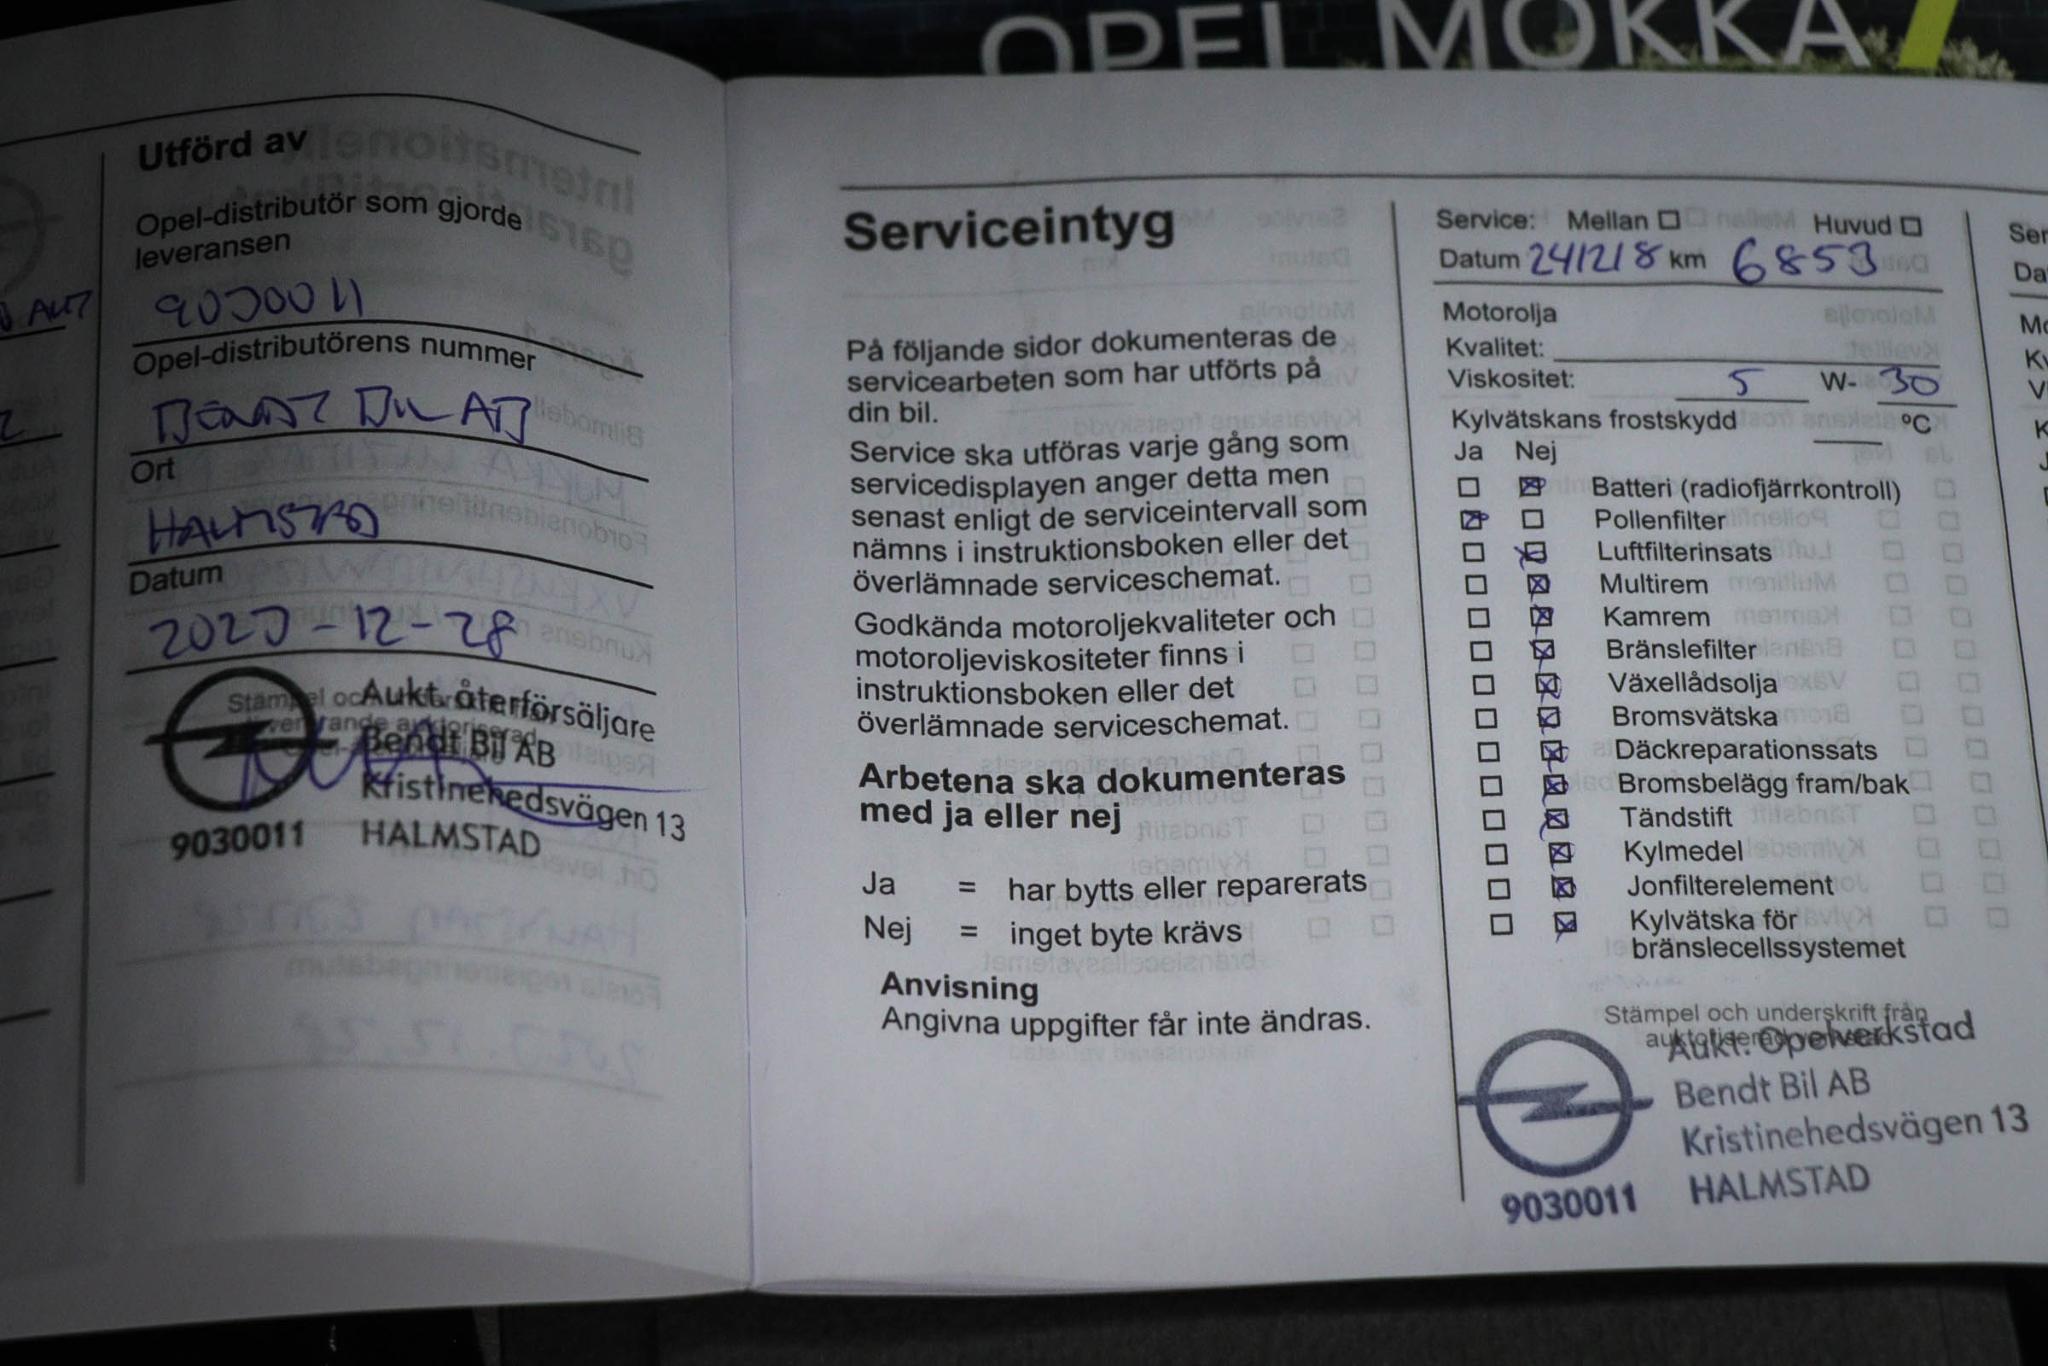 OPEL MOKKA
Utförd av
Opel-distributör som gjorde
leveransen
9030011
Opel-distributörens nummer
BENDT BIL AB
Ort
HALMSTAD
Datum
2023-12-28
Aukt. återförsäljare
Bendt Bil AB
Kristinehedsvägen 13
9030011 HALMSTAD
Serviceintyg
På följande sidor dokumenteras de
servicearbeten som har utförts på
din bil.
Service ska utföras varje gång som
servicedisplayen anger detta men
senast enligt de serviceintervall som
nämns i instruktionsboken eller det
överlämnade serviceschemat.
Godkända motoroljekvaliteter och
motoroljeviskositeter finns i
instruktionsboken eller det
överlämnade serviceschemat.
Arbetena ska dokumenteras
med ja eller nej
Ja = har bytts eller reparerats
Nej = inget byte krävs
Anvisning
Angivna uppgifter får inte ändras.
Service: Mellan ☐ Huvud ☐
Datum 241218 km 6853
Motorolja
Kvalitet:
Viskositet: 5 W- 30
Kylvätskans frostskydd °C
Ja Nej
☐ ☒ Batteri (radiofjärrkontroll)
☒ ☐ Pollenfilter
☐ ☒ Luftfilterinsats
☐ ☒ Multirem
☐ ☒ Kamrem
☐ ☒ Bränslefilter
☐ ☒ Växellådsolja
☐ ☒ Bromsvätska
☐ ☒ Däckreparationssats
☐ ☒ Bromsbelägg fram/bak
☐ ☒ Tändstift
☐ ☒ Kylmedel
☐ ☒ Jonfilterelement
☐ ☒ Kylvätska för
bränslecellssystemet
Stämpel och underskrift från
Aukt. Opelverkstad
Bendt Bil AB
Kristinehedsvägen 13
9030011 HALMSTAD